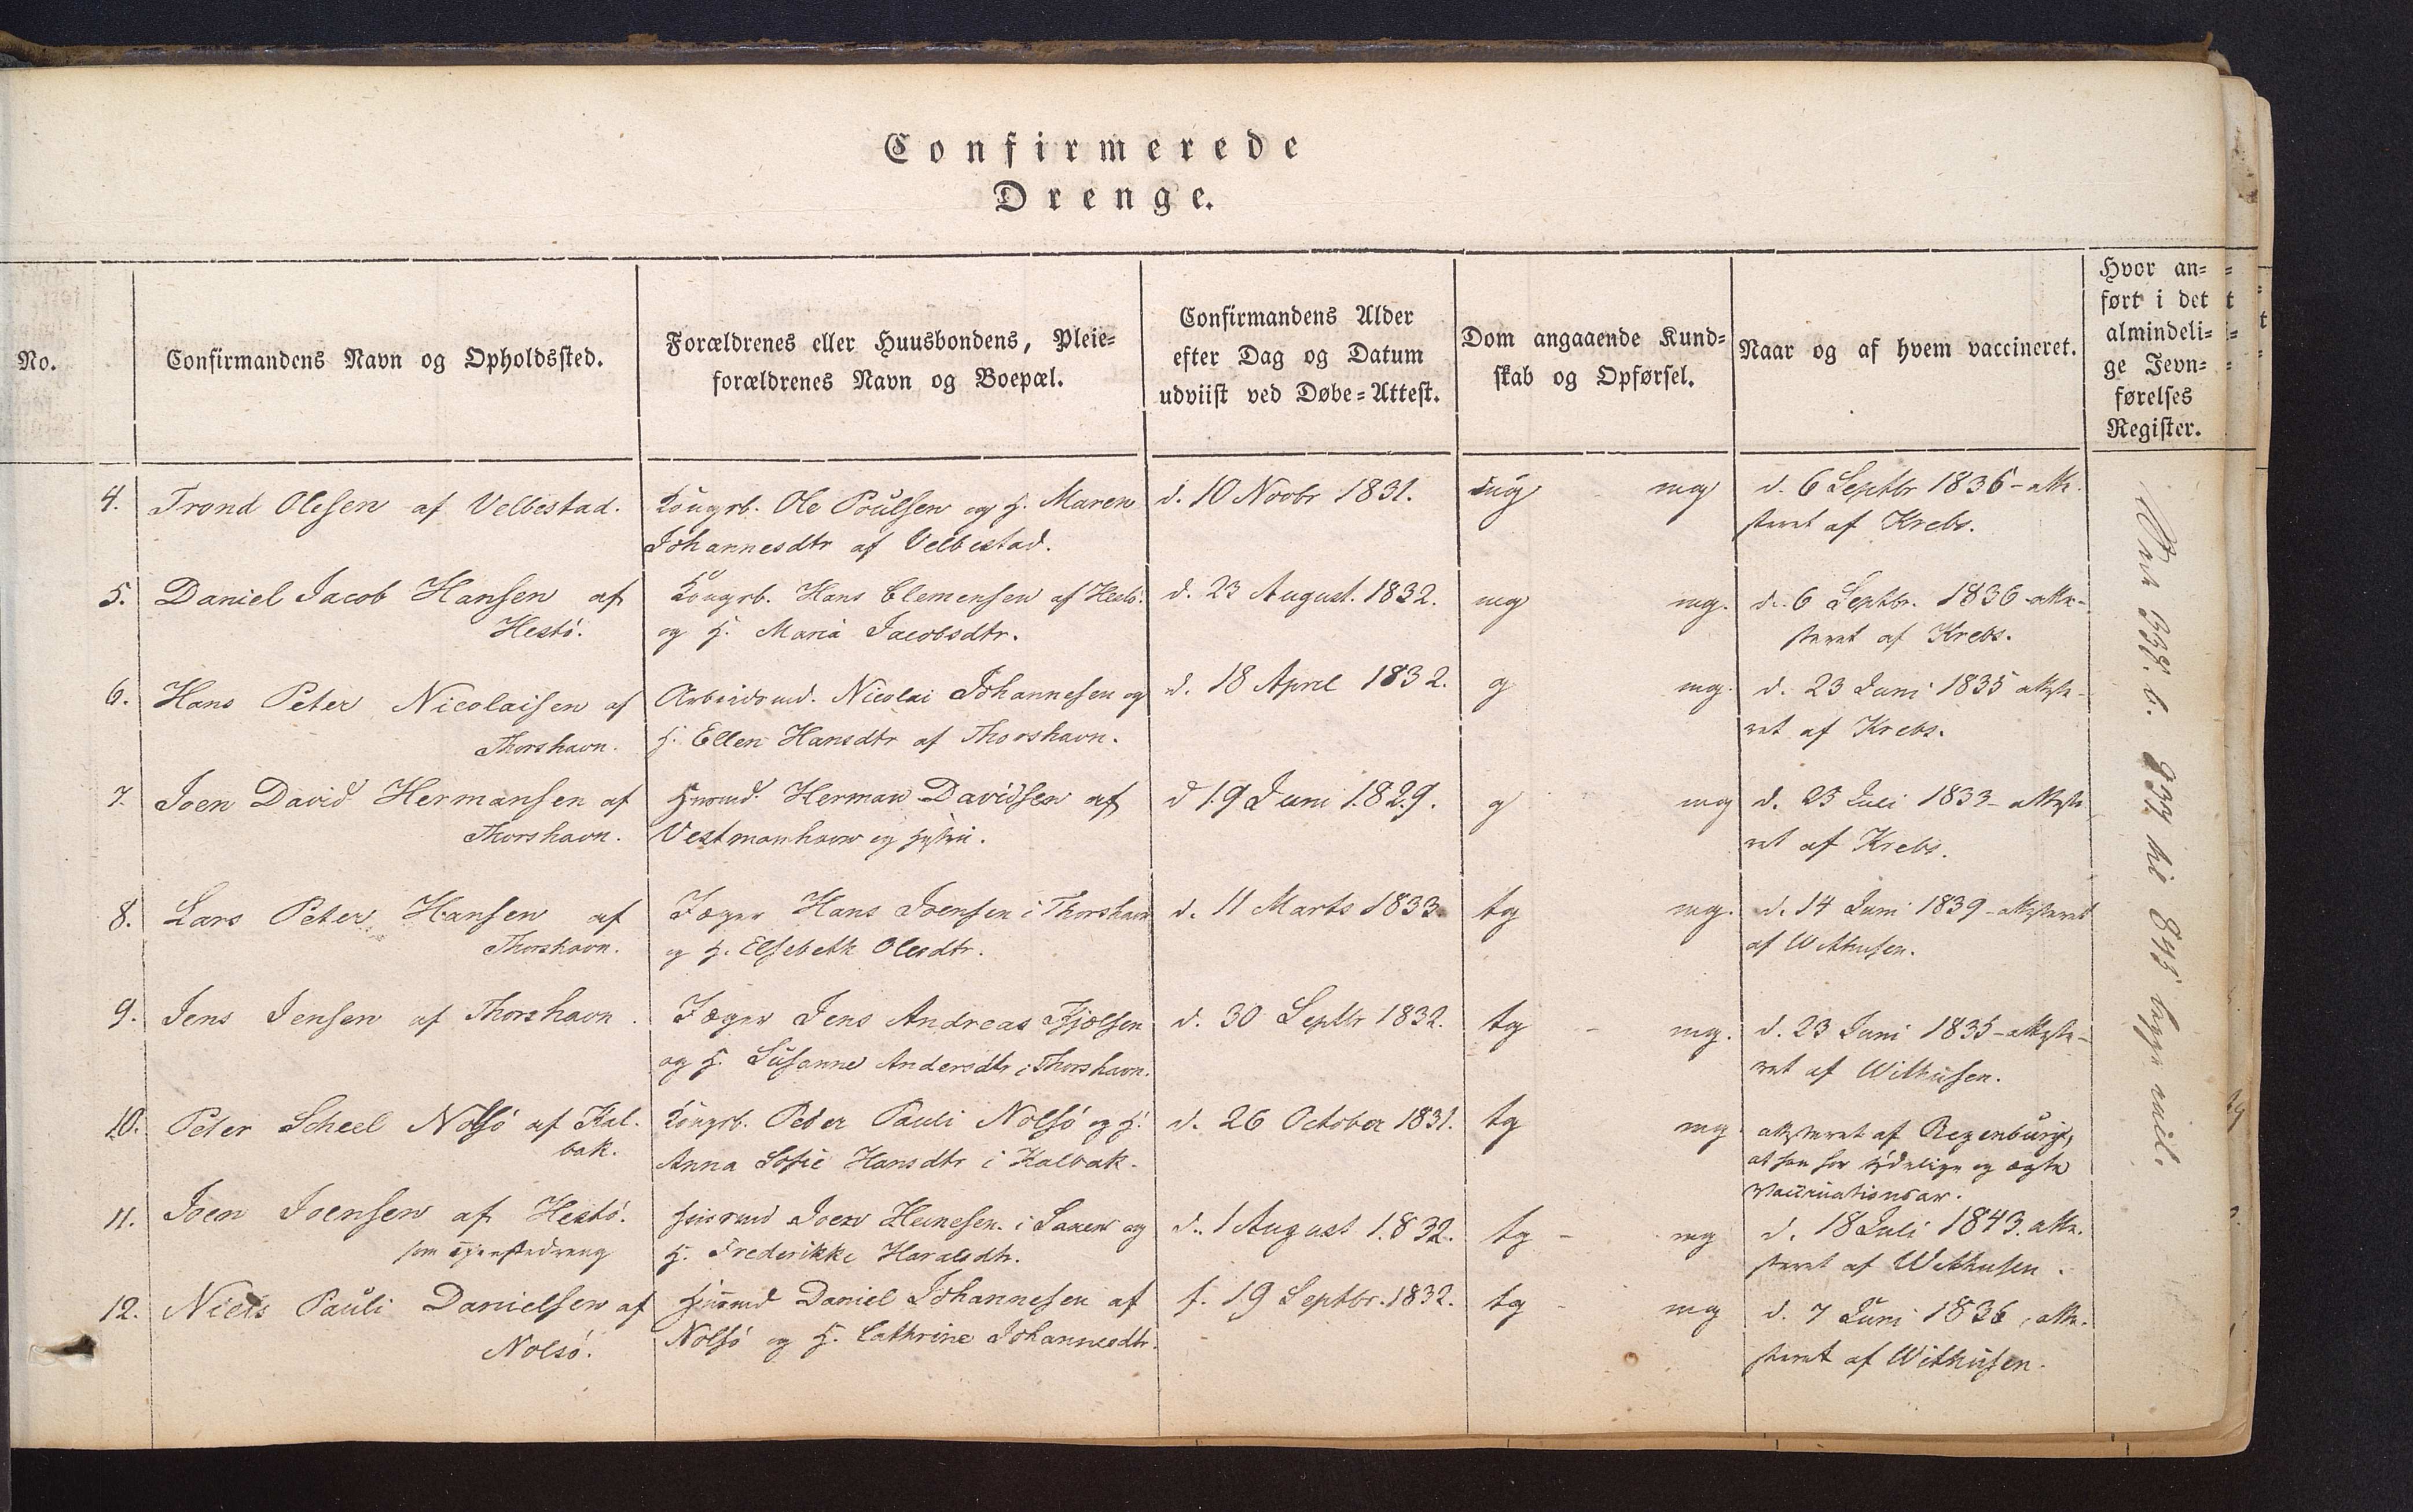 Confirmerede
Drenge.
No.
Confirmandens Navn og Opholdssted.
Forældrenes eller Huusbondens, Pleie=
forældrenes Navn og Boepæl.
Confirmandens Alder
efter Dag og Datum
udviist ved Døbe=Attest.
Dom angaaende Kund=
skab og Opførsel.
Naar og af hvem vaccineret.
Hvor an=
ført i det
almindeli=
ge Jevn=
førelses
Register.
4.
Trond Olesen af Velbestad.
Kongsb. Ole Poulsen og H. Maren
Johannesdtr af Velbestad.
d. 10 Novbr 1831.
mg
d. 6 Septbr 1836 - atte-
steret af Krebs.
5.
Daniel Jacob Hansen af
Hestö.
Kongsb. Hans Clemensen af Hestö.
og H. Maria Jacobsdtr.
d. 23 August. 1832.
mg
mg.
d. 6 Septbr. 1836 atte-
steret af Krebs.
6.
Hans Peter Nicolaisen af
Thorshavn.
Arbeidsmd. Nicolai Johannesen og
H. Ellen Hansdtr af Thorshavn.
d. 18 April 1832.
g
mg.
d. 23 Juni 1835 atteste-
ret af Krebs.
7.
Joen David Hermansen af
Thorshavn.
Huusmd. Herman Davidsen af
Vestmanhavn og Hustru.
d 19 Juni 1829.
g
mg
d. 23 Juli 1833 - atteste
ret af Krebs.
8.
Lars Peter Hansen af
Thorshavn.
Jæger Hans Joensen i Thorshavn
og H. Elsebeth Olesdtr.
d. 11 Marts 1833.
tg
mg.
d. 14 Juni 1839 - attesteret
af Withusen.
9.
Jens Jensen af Thorshavn.
Jæger Jens Andreas Kjølsen
og H. Susanne Andersdtr i Thorshavn.
d. 30 Septbr 1832.
tg -
mg.
d. 23 Juni 1835 - atteste-
ret af Withusen.
10.
Peter Scheel Nolsö af Kal-
bak.
Kongsb. Peder Pauli Nolsö og H.
Anna Sofie Hansdtr i Kalbak.
d. 26 October 1831.
tg
mg.
attesteret af Regenburg,
at han har tydelige og ægte
Vaccinationsar.
11.
Joen Joensen af Hestö.
som Tjenestedreng
Huusmd Joen Heinesen i Saxen og
H. Frederikke Haralsdtr.
d. 1 August 1832.
tg -
mg
d. 18 Juli 1843. atte-
steret af Withusen.
12.
Niels Pauli Danielsen af
Nolsö.
Huusmd Daniel Johannesen af
Nolsö og H. Cathrine Johannesdtr.
f. 19 Septbr. 1832.
tg -
mg
d. 7 Juni 1836, atte-
steret af Withusen.